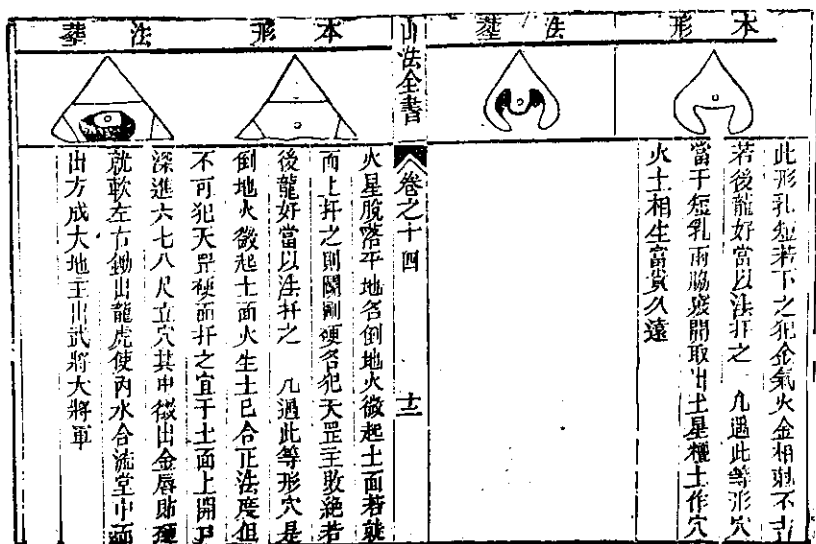 本形
葬法
此形乳短若下之犯金氣火金相剋不吉
若後龍好當以法扦之　凡遇此等形穴
當于短乳兩脇裁開取出土星樁土作穴
火土相生富貴久遠
山法全書
卷之十四
十二
本形
法葬
火星脫落平地名倒地火微起土面若就
而上扦之則鬭剛硬名犯天罡主敗絕若
後龍好當以法扦之　凡遇此等形穴是
倒地火微起土面火生土已合正法度但
不可犯天罡硬面扦之宜于土面上開戶
深進六七八尺立穴其中微出金唇貼
就軟左右鋤出龍虎使內水合流堂中
出方成大地主出武將大將軍